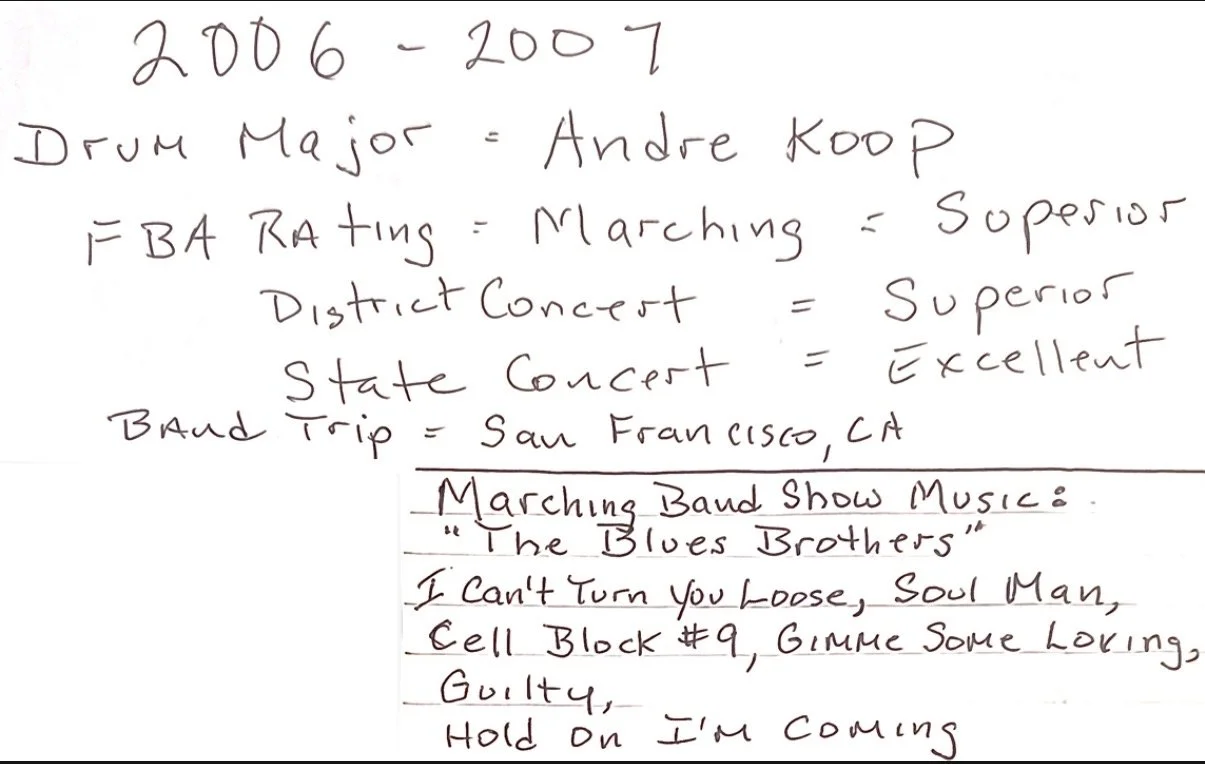 2006 - 2007
Drum Major = Andre Koop
FBA Rating = Marching = Superior
District Concert = Superior
State Concert = Excellent
Band Trip = San Francisco, CA
Marching Band Show Music:
"The Blues Brothers"
I Can't Turn You Loose, Soul Man,
Cell Block #9, Gimme Some Loving,
Guilty,
Hold On I'm Coming